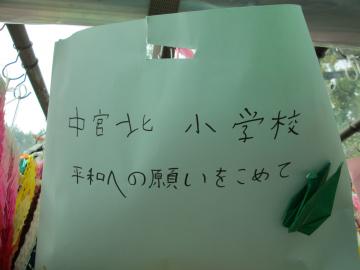 中宮北 小学校
平和への願いをこめて